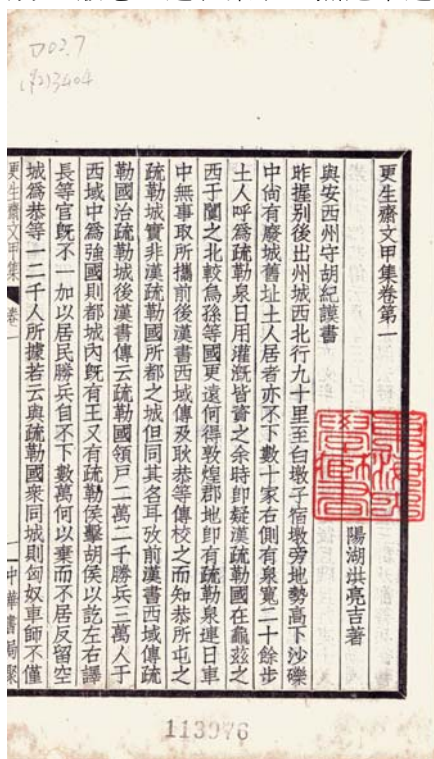 D02.7
(92)3404
更生齋文甲集卷第一
陽湖洪亮吉著
與安西州守胡紀謨書
昨握別後出州城西北行九十里至白墩子宿墩旁地勢高下沙礫
中尚有廢城舊址土人居者亦不下數十家右側有泉寬二十餘步
土人呼爲疏勒泉日用灌漑皆資之余時卽疑漢疏勒國在龜茲之
西于闐之北較烏孫等國更遠何得敦煌郡地卽有疏勒泉連日車
中無事取所攜前後漢書西域傳及耿恭等傳校之而知恭所屯之
疏勒城實非漢疏勒國所都之城但同其名耳攷前漢書西域傳疏
勒國治疏勒城後漢書傳云疏勒國領戶二萬二千勝兵三萬人于
西域中爲強國則都城內旣有王又有疏勒侯擊胡侯以訖左右譯
長等官旣不一加以居民勝兵自不下數萬何以棄而不居反留空
城爲恭等一二千人所據若云與疏勒國衆同城則匈奴車師不僅
更生齋文甲集 卷一 一 中華書局聚
113976